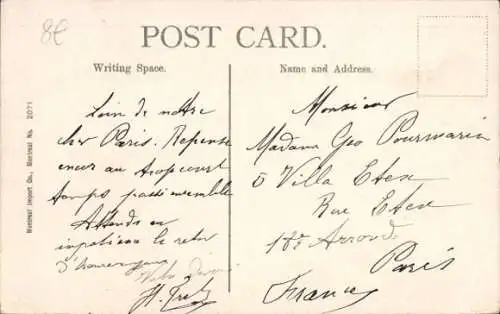 8€
POST CARD.
Writing Space.
Name and Address.
Loin de notre
cher Paris. Repense
encor au trop court
temps passé ensemble
Attends en
impatience le retour
d'
H.
Monsieur
Madame Geo Pourmarin
5 Villa Etex
Rue Etex
18e Arrond
Paris
France
Montreal Import Co., Montreal No. 2071